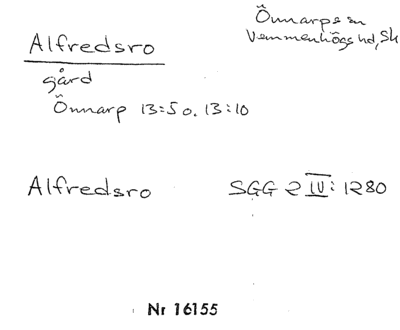 Alfredsro
Önnarps sn
Vemmenhögs hd, Sk
gård
Önnarp 13:5 o. 13:10
Alfredsro SGG 2 IV: 1280
Nr 16155